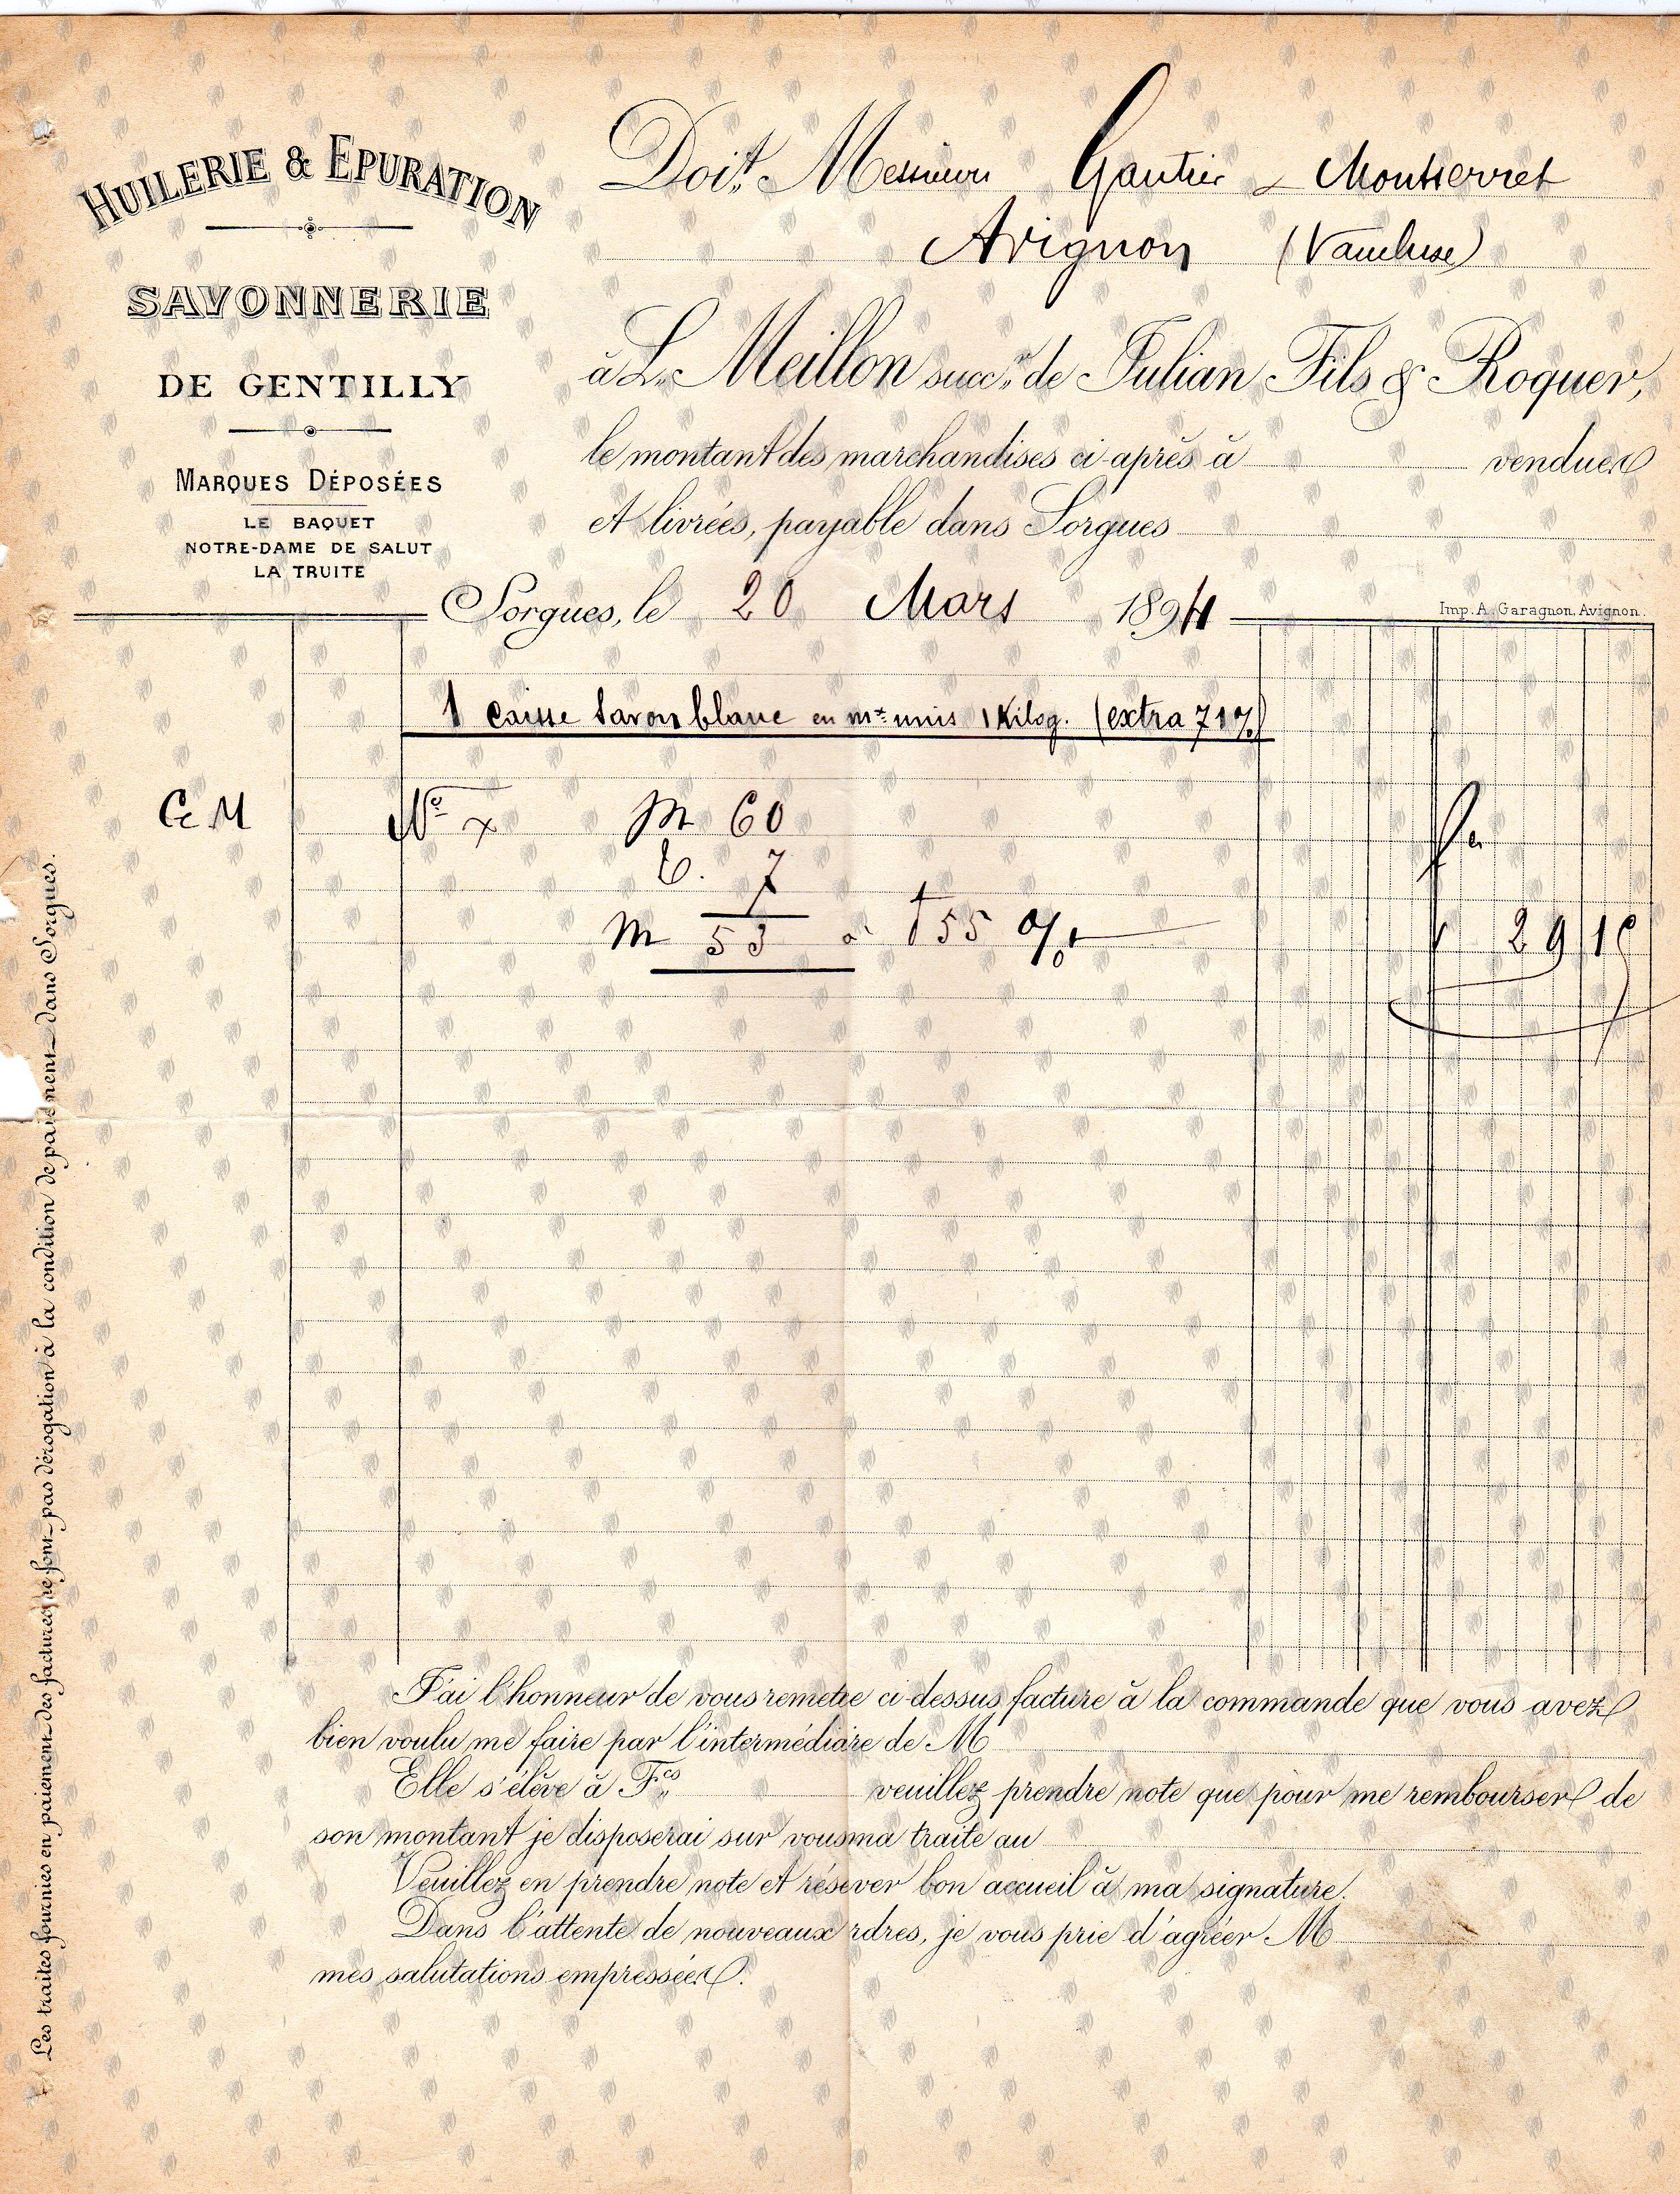 HUILERIE & EPURATION
SAVONNERIE
DE GENTILLY
MARQUES DÉPOSÉES
LE BAQUET
NOTRE-DAME DE SALUT
LA TRUITE
Doit Messieurs Gautier & Montserret
Avignon (Vaucluse)
à L. Meillon succr. de Julian Fils & Roquer,
le montant des marchandises ci-après à vendues
et livrées, payable dans Sorgues
Sorgues, le 20 Mars 1894
Imp. A. Garagnon, Avignon.
1 Caisse Savon blanc en mx unis 1 Kilog. (extra 71%)
G M No x m 60
T. 7
m 53 à f 55 %
29 15
J'ai l'honneur de vous remetre ci-dessus facture à la commande que vous avez
bien voulu me faire par l'intermédiaire de M
Elle s'élève à Fcs veuillez prendre note que pour me rembourser de
son montant je disposerai sur vous ma traite au
Veuillez en prendre note et résever bon accueil à ma signature.
Dans l'attente de nouveaux rdres, je vous prie d'agréer M
mes salutations empressées.
Les traites fournies en paiement des factures ne font pas dérogation à la condition de paiement dans Sorgues.